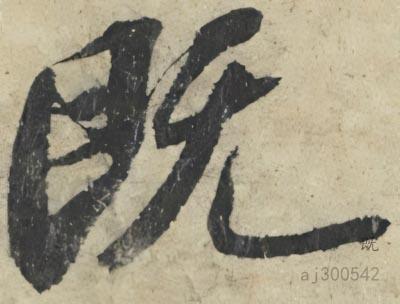 既
既
aj300542